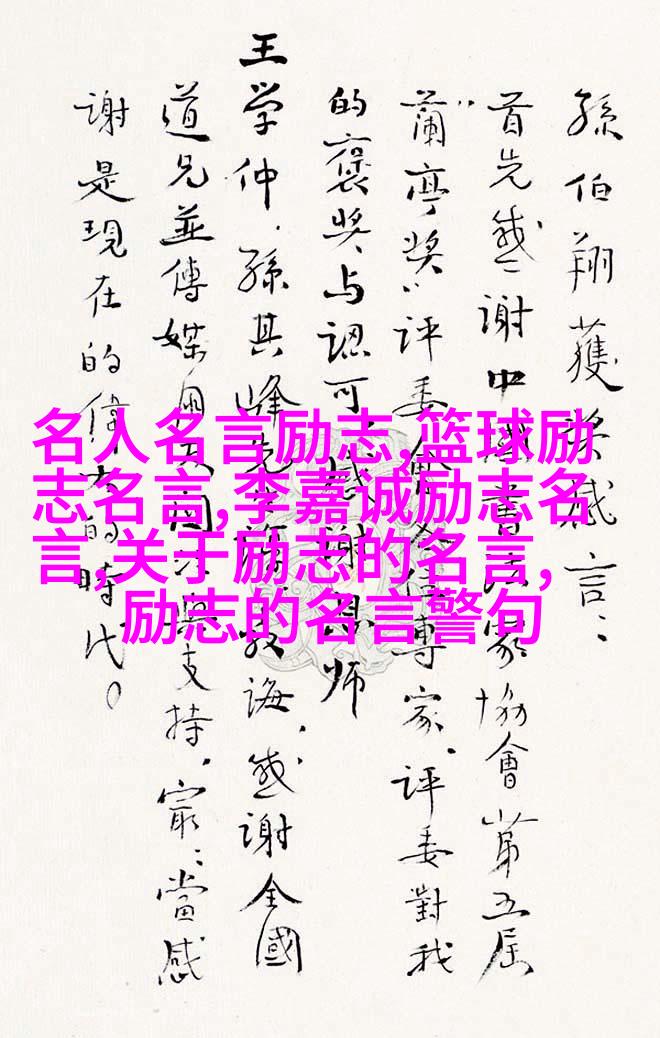 孫伯翔獲奖感言:
首先感谢中國書法家協會第五届
"蘭亭奖"评委會專家.评委對我
的褒奖与認可感謝恩师
王学仲.孫其峰先教诲.感谢全國
道兄並傳媒與支持.最:當感
谢是現在的偉大的時代。
名人名言励志,篮球励
志名言,李嘉诚励志名
言,关于励志的名言,
励志的名言警句